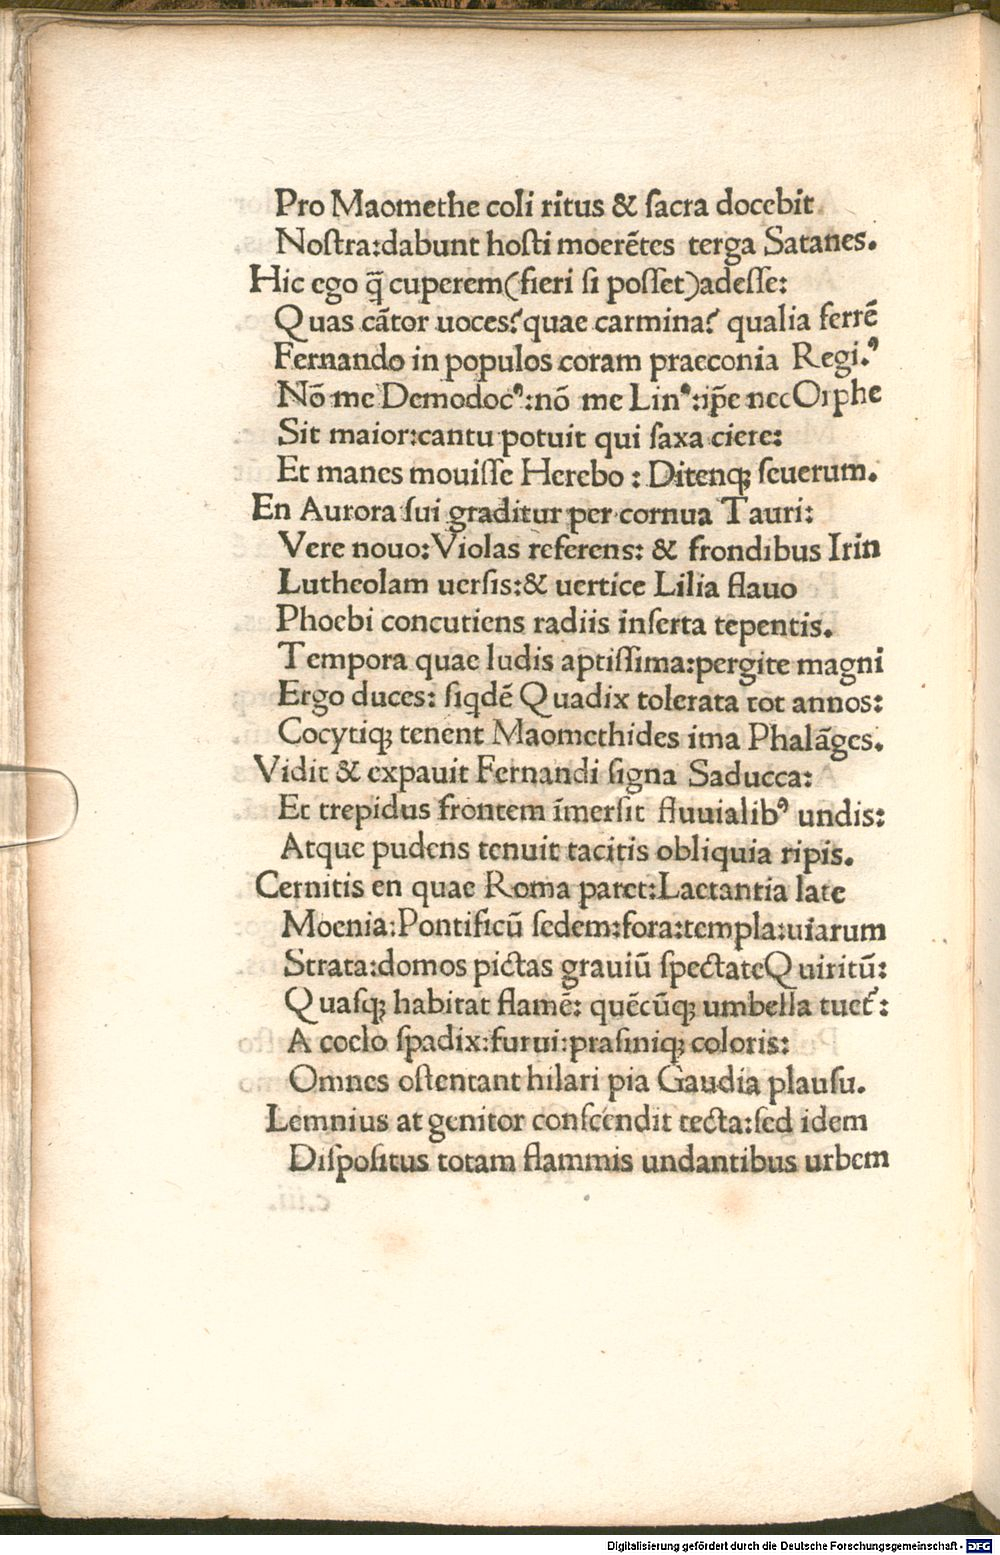 Pro Maomethe coli ritus & ſacra docebit
Noſtra:dabunt hoſti moerētes terga Satanes.
Hic ego q̄ cuperem(fieri ſi poſſet)adeſſe:
Quas cātor uoces?quae carmina? qualia ferrē
Fernando in populos coram praeconia Regi.ꝰ
Nō me Demodocꝰ:nō me Linꝰ:ip̄e nec Orphe
Sit maior:cantu potuit qui ſaxa ciere:
Et manes mouiſſe Herebo: Ditenqꝫ ſeuerum.
En Aurora ſui graditur per cornua Tauri:
Vere nouo:Violas referens: & frondibus Irin
Lutheolam uerſis:& uertice Lilia flauo
Phoebi concutiens radiis inſerta tepentis.
Tempora quae ludis aptiſſima:pergite magni
Ergo duces: ſiqdē Quadix tolerata tot annos:
Cocytiqꝫ tenent Maomethides ima Phalāges.
Vidit & expauit Fernandi ſigna Saducca:
Et trepidus frontem īmerſit fluuialibꝰ undis:
Atque pudens tenuit tacitis obliquia ripis.
Cernitis en quae Roma paret:Lactantia late
Moenia:Pontificū ſedem:fora:templa:uiarum
Strata:domos pictas grauiū ſpectate Quiritū:
Quaſqꝫ habitat flamē: quēcūqꝫ umbella tuet᷑:
A coclo ſpadix:furui:praſiniqꝫ coloris:
Omnes oſtentant hilari pia Gaudia plauſu.
Lemnius at genitor conſcendit tecta:ſed idem
Diſpoſitus totam flammis undantibus urbem
c.iii.
Digitalisierung gefördert durch die Deutsche Forschungsgemeinschaft - DFG